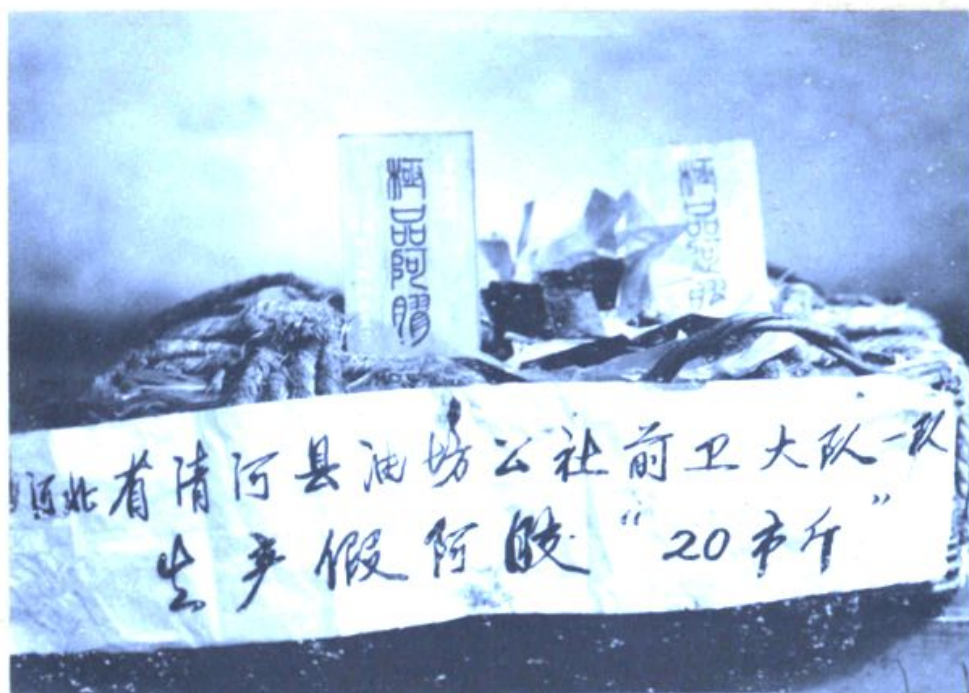 極品阿膠
極品阿膠
河北省清河县油坊公社前卫大队一队
生产假阿胶“20市斤”